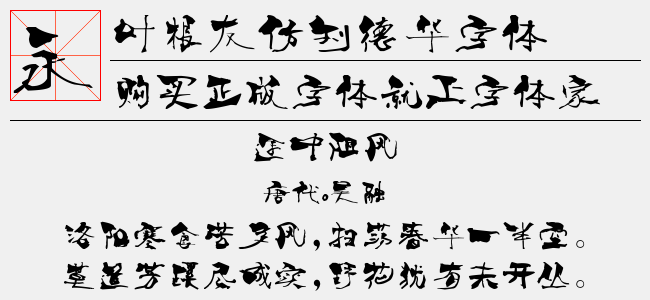 永
叶根友仿刘德华字体
购买正版字体就上字体家
途中阻风
唐代。吴融
洛阳寒食苦多风，扫荡春华一半空。
莫道芳蹊尽成实，野花犹有未开丛。